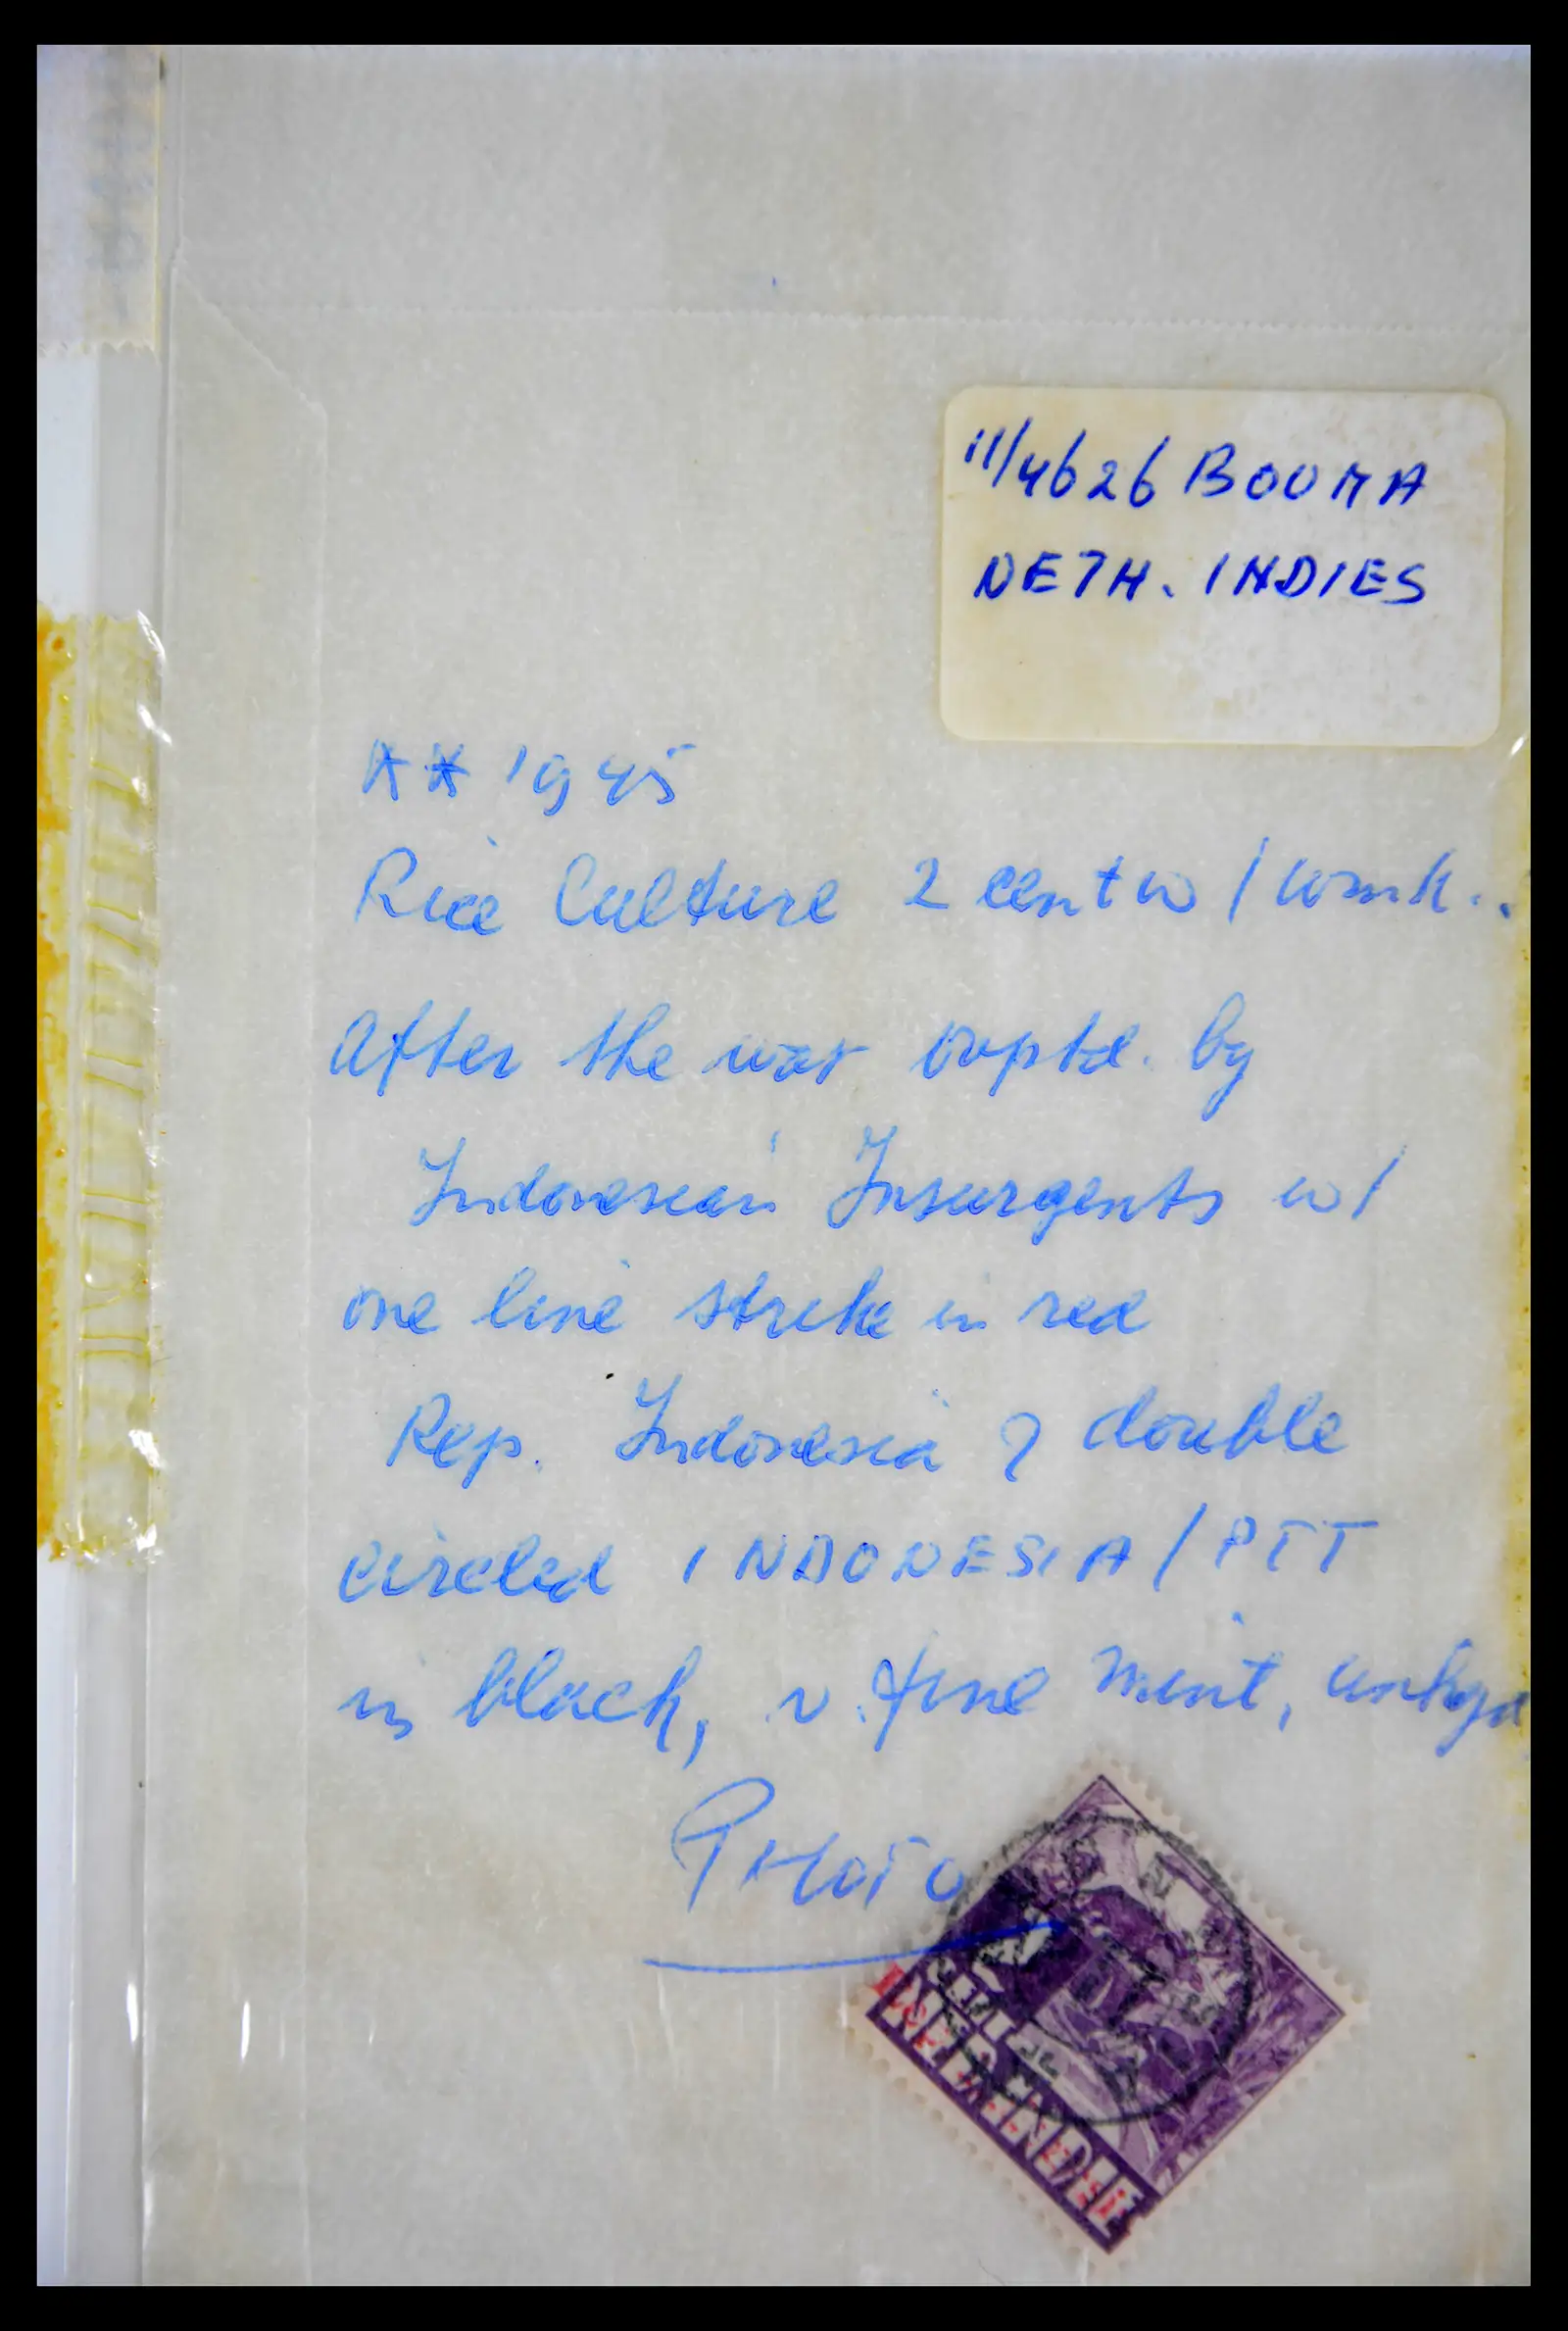 11/4626 BOUMA
NETH. INDIES
** 1945
Rice Culture 2 cent w/wmk..
After the war ovptd. by
Indonesian Insurgents w/
one line strike in red
Rep. Indonesia & double
circled INDONESIA/PTT
in black, v. fine mint, unhgd
PHOTO
NED. INDIE